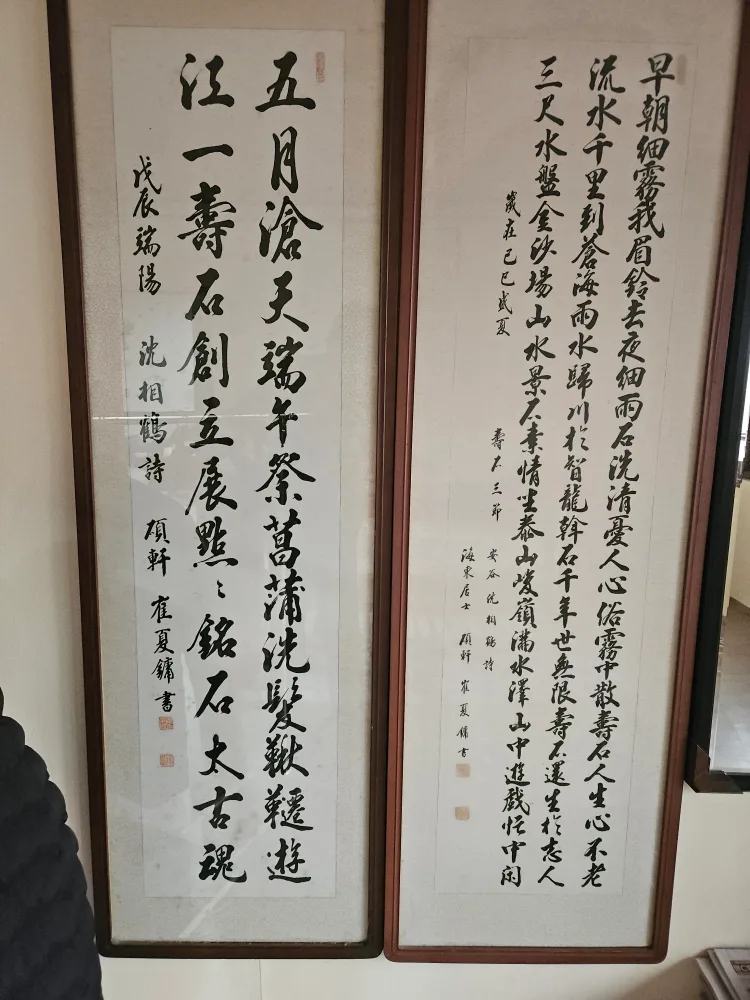 早朝細霧我眉鈴去夜細雨石洗清憂人心俗霧中散壽石人生心不老
流水千里到蒼海雨水歸川於智龍斡石千年世無限壽石還生於志人
三尺水盤金沙場山水景石素情坐泰山峻嶺滿水澤山中遊戲恬中閑
歲在己巳盛夏
壽石三節
安谷 沈相鶴 詩
海東居士 碩軒 崔夏鏞 書
五月滄天端午祭菖蒲洗髮鞦韆遊
江一壽石創立展點々銘石太古魂
戊辰端陽 沈相鶴 詩 碩軒 崔夏鏞 書